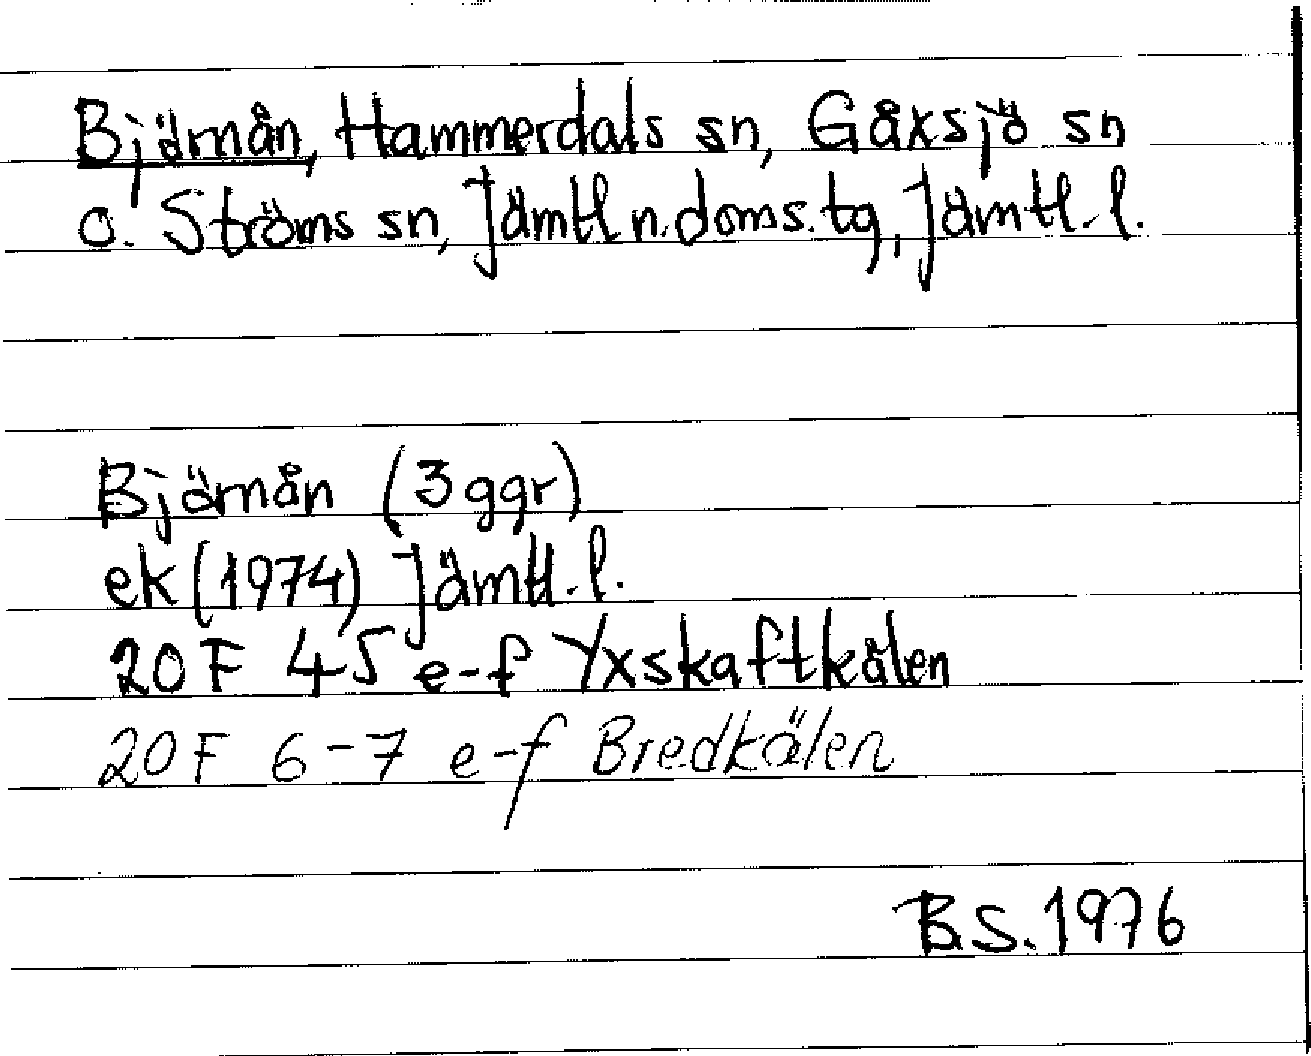 Björnån, Hammerdals sn, Gåxsjö sn
o. Ströms sn, Jämtl n. doms. tg, Jämtl. l.
Björnån (3 ggr)
ek (1974) Jämtl. l.
20 F 45 e-f Yxskaftkälen
20 F 6-7 e-f Bredkälen
B.S. 1976